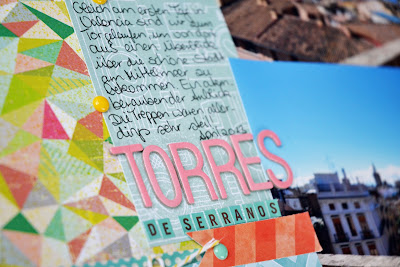 Gleich am ersten Tag in
Valencia sind wir zum
Tor gelaufen, um von dort
aus einen Überblick
über die schöne Stadt
am Mittelmeer zu
bekommen. Ein atem-
beraubender Anblick.
Die Treppen waren aller-
dings sehr steil!
TORRES
DE SERRANOS